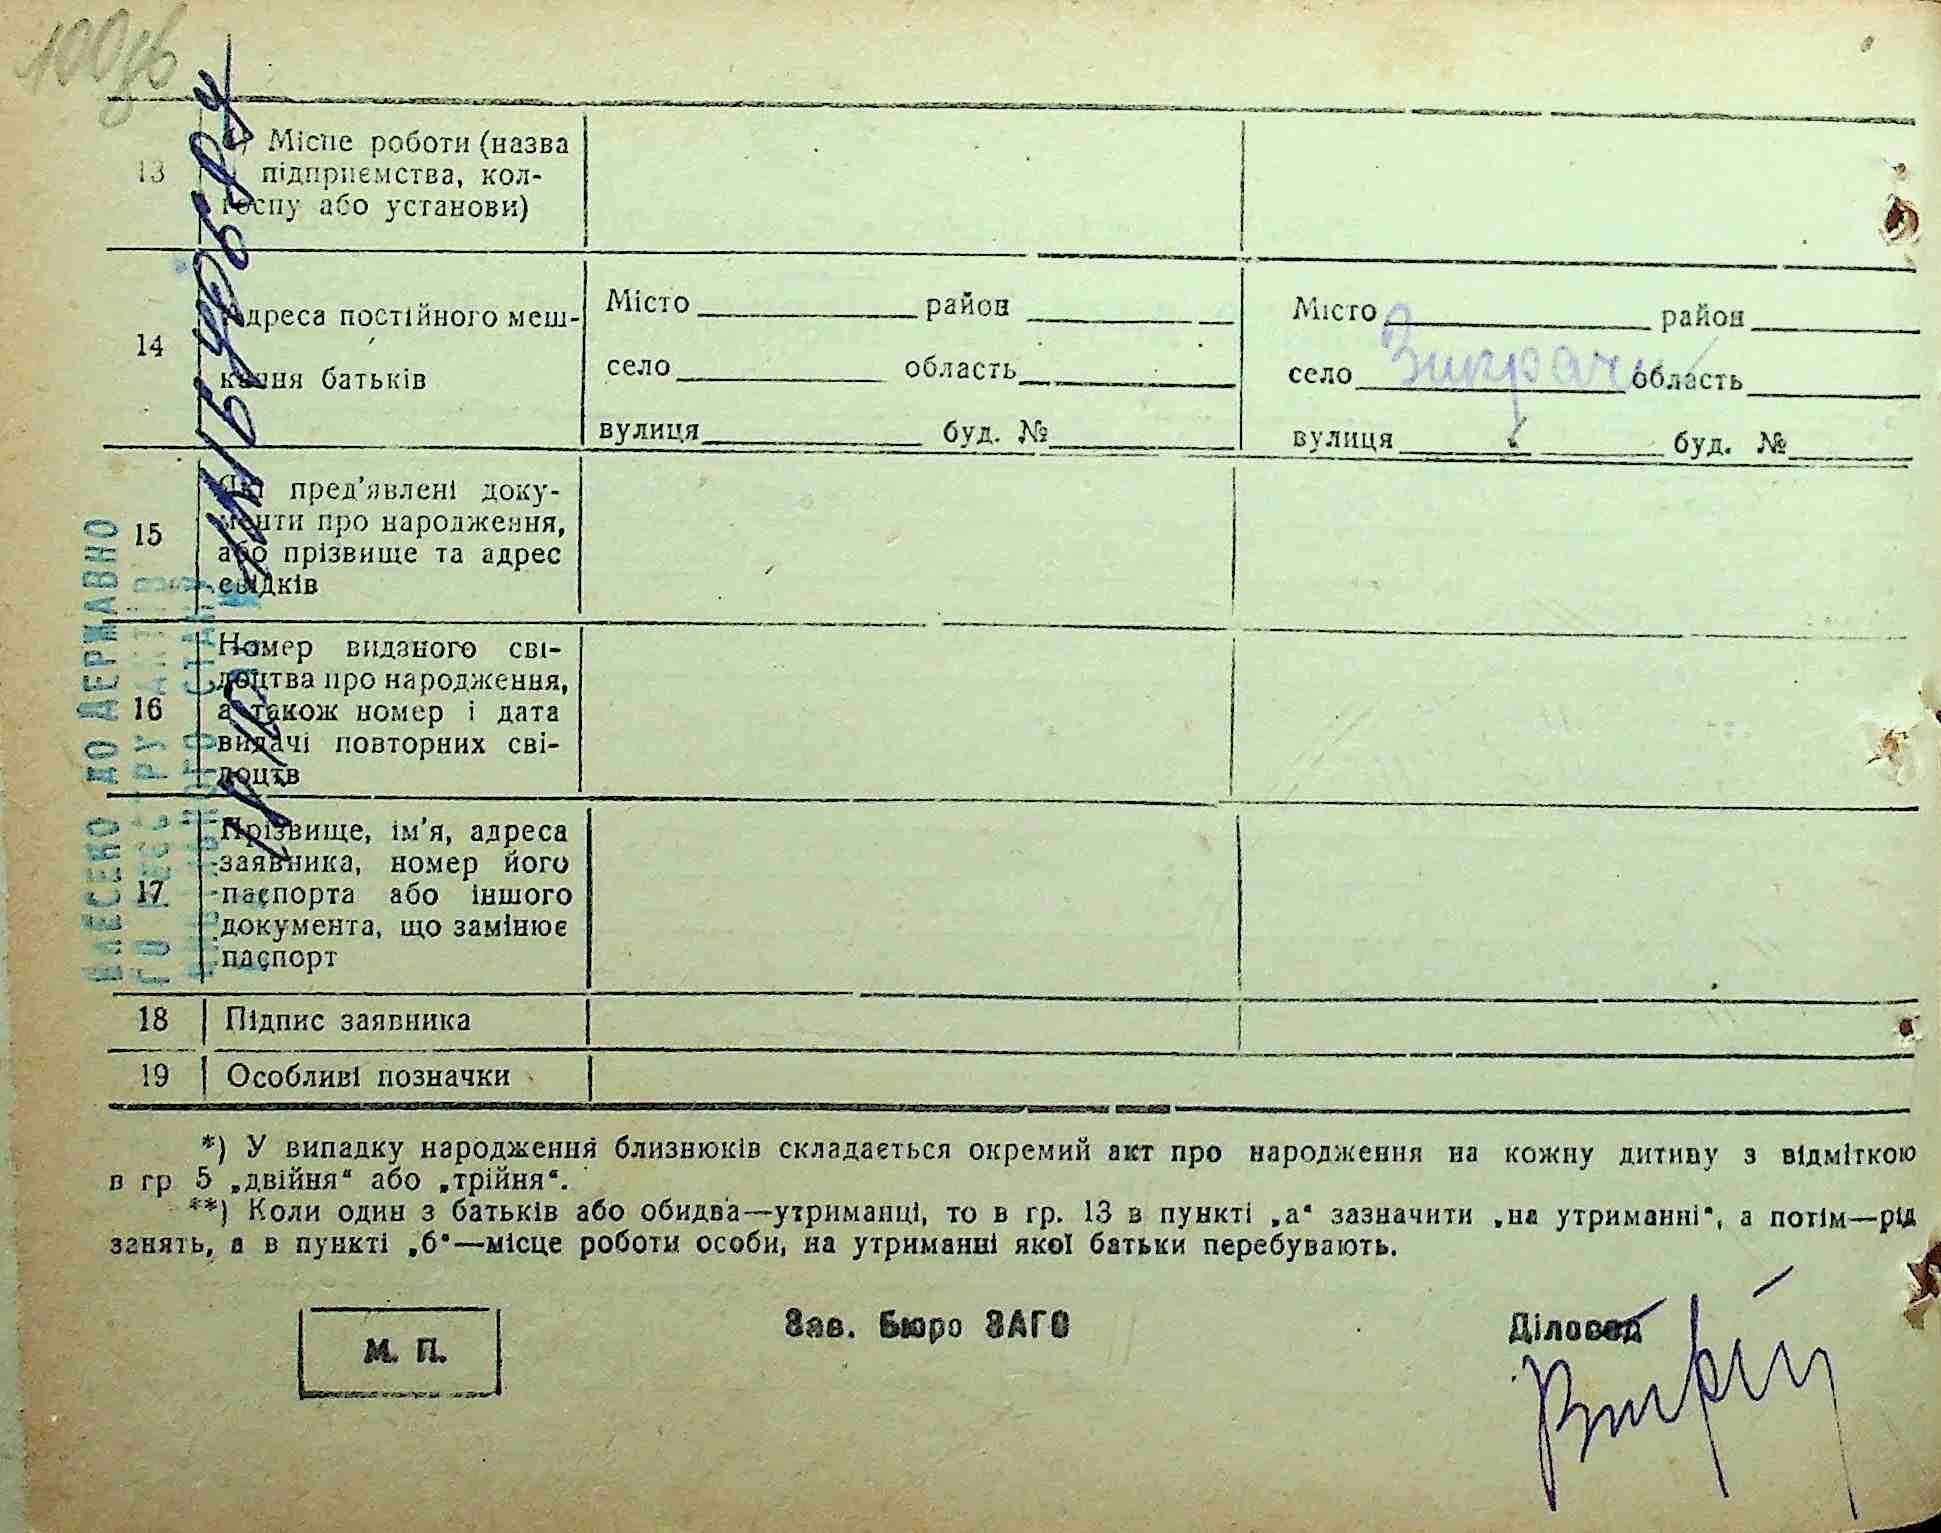 100зв
13
б) Місце роботи (назва
підприємства, кол-
госпу або установи)
14
Адреса постійного меш-
кання батьків
Місто район
село область
вулиця буд. №
Місто район
село Зиврачи область
вулиця буд. №
15
Які пред'явлені доку-
менти про народження,
або прізвище та адрес
свідків
16
Номер виданого сві-
доцтва про народження,
а також номер і дата
видачі повторних сві-
доцтв
17
Прізвище, ім'я, адреса
заявника, номер його
паспорта або іншого
документа, що замінює
паспорт
18 Підпис заявника
19 Особливі позначки
ВНЕСЕНО ДО ДЕРЖАВНО
ГО РЕЄСТРУ АКТІВ
ЦИВІЛЬНОГО СТАНУ
*) У випадку народження близнюків складається окремий акт про народження на кожну дитину з відміткою
в гр 5 „двійня“ або „трійня“.
**) Коли один з батьків або обидва—утриманці, то в гр. 13 в пункті „а“ зазначити „на утриманні“, а потім—рід
занять, а в пункті „б“—місце роботи особи, на утриманні якої батьки перебувають.
М. П.
Зав. Бюро ЗАГС
Діловод